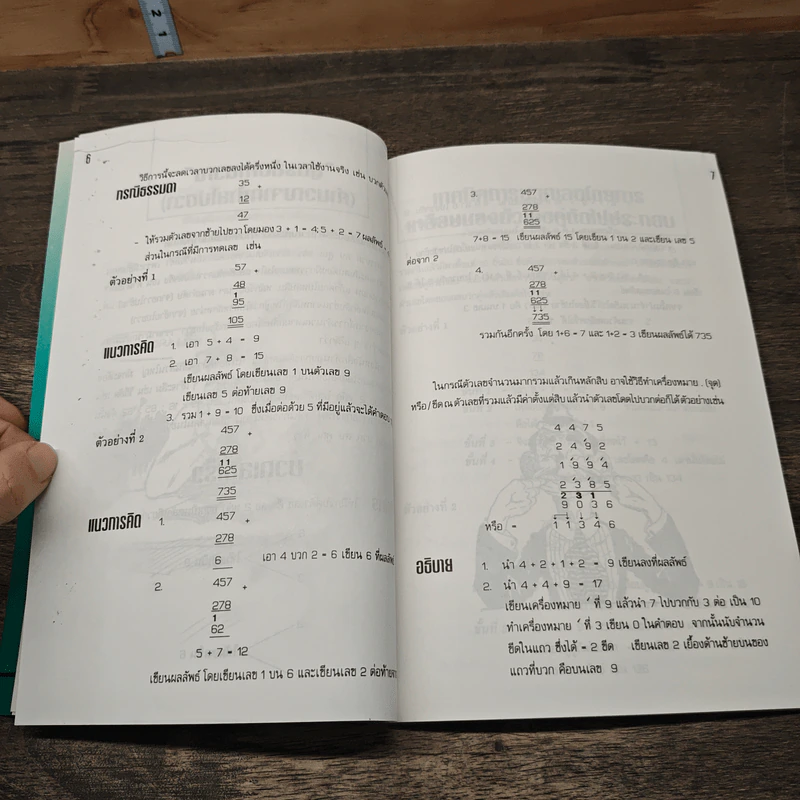 2 1
6
วิธีการนี้จะลดเวลาบวกเลขลงได้ครึ่งหนึ่ง ในเวลาใช้งานจริง เช่น บวก
กรณีธรรมดา
35 +
12
47
- ให้รวมตัวเลขจากซ้ายไปขวา โดยมอง 3 + 1 = 4; 5 + 2 = 7 ผลลัพธ์ =
ส่วนในกรณีที่มีการทดเลข เช่น
ตัวอย่างที่ 1
57 +
48
1
95
105
แนวการคิด 1. เอา 5 + 4 = 9
2. เอา 7 + 8 = 15
เขียนผลลัพธ์ โดยเขียนเลข 1 บนตัวเลข 9
เขียนเลข 5 ต่อท้ายเลข 9
3. รวม 1 + 9 = 10 ซึ่งเมื่อต่อด้วย 5 ที่มีอยู่แล้วจะได้คำตอบ
ตัวอย่างที่ 2
457 +
278
11
625
735
แนวการคิด 1. 457 +
278
6 เอา 4 บวก 2 = 6 เขียน 6 ที่ผลลัพธ์
2. 457 +
278
1
62
5 + 7 = 12
เขียนผลลัพธ์ โดยเขียนเลข 1 บน 6 และเขียนเลข 2 ต่อท้าย
7
3. 457 +
278
11
625
7+8 = 15 เขียนผลลัพธ์ 15 โดยเขียน 1 บน 2 และเขียน เลข 5
ต่อจาก 2
4. 457 +
278
11
625
↓↓
735
รวมกันอีกครั้ง โดย 1+6 = 7 และ 1+2 = 3 เขียนผลลัพธ์ได้ 735
ในกรณีตัวเลขจำนวนมากรวมแล้วเกินหลักสิบ อาจใช้วิธีทำเครื่องหมาย . (จุด)
หรือ / ขีด ณ ตัวเลขที่รวมแล้วมีค่าตั้งแต่สิบ แล้วนำตัวเลขโดดไปบวกต่อก็ได้ ตัวอย่างเช่น
4 4 7 5
2 4 9 2
1 9 9 4
2 3 8 5
2 3 1
9 0 3 6
หรือ = 1 1 3 4 6
อธิบาย 1. นำ 4 + 2 + 1 + 2 = 9 เขียนลงที่ผลลัพธ์
2. นำ 4 + 4 + 9 = 17
เขียนเครื่องหมาย ′ ที่ 9 แล้วนำ 7 ไปบวกกับ 3 ต่อ เป็น 10
ทำเครื่องหมาย ′ ที่ 3 เขียน 0 ในคำตอบ จากนั้นนับจำนวน
ขีดในแถว ซึ่งได้ = 2 ขีด เขียนเลข 2 เยื้องด้านซ้ายบนของ
แถวที่บวก คือบนเลข 9